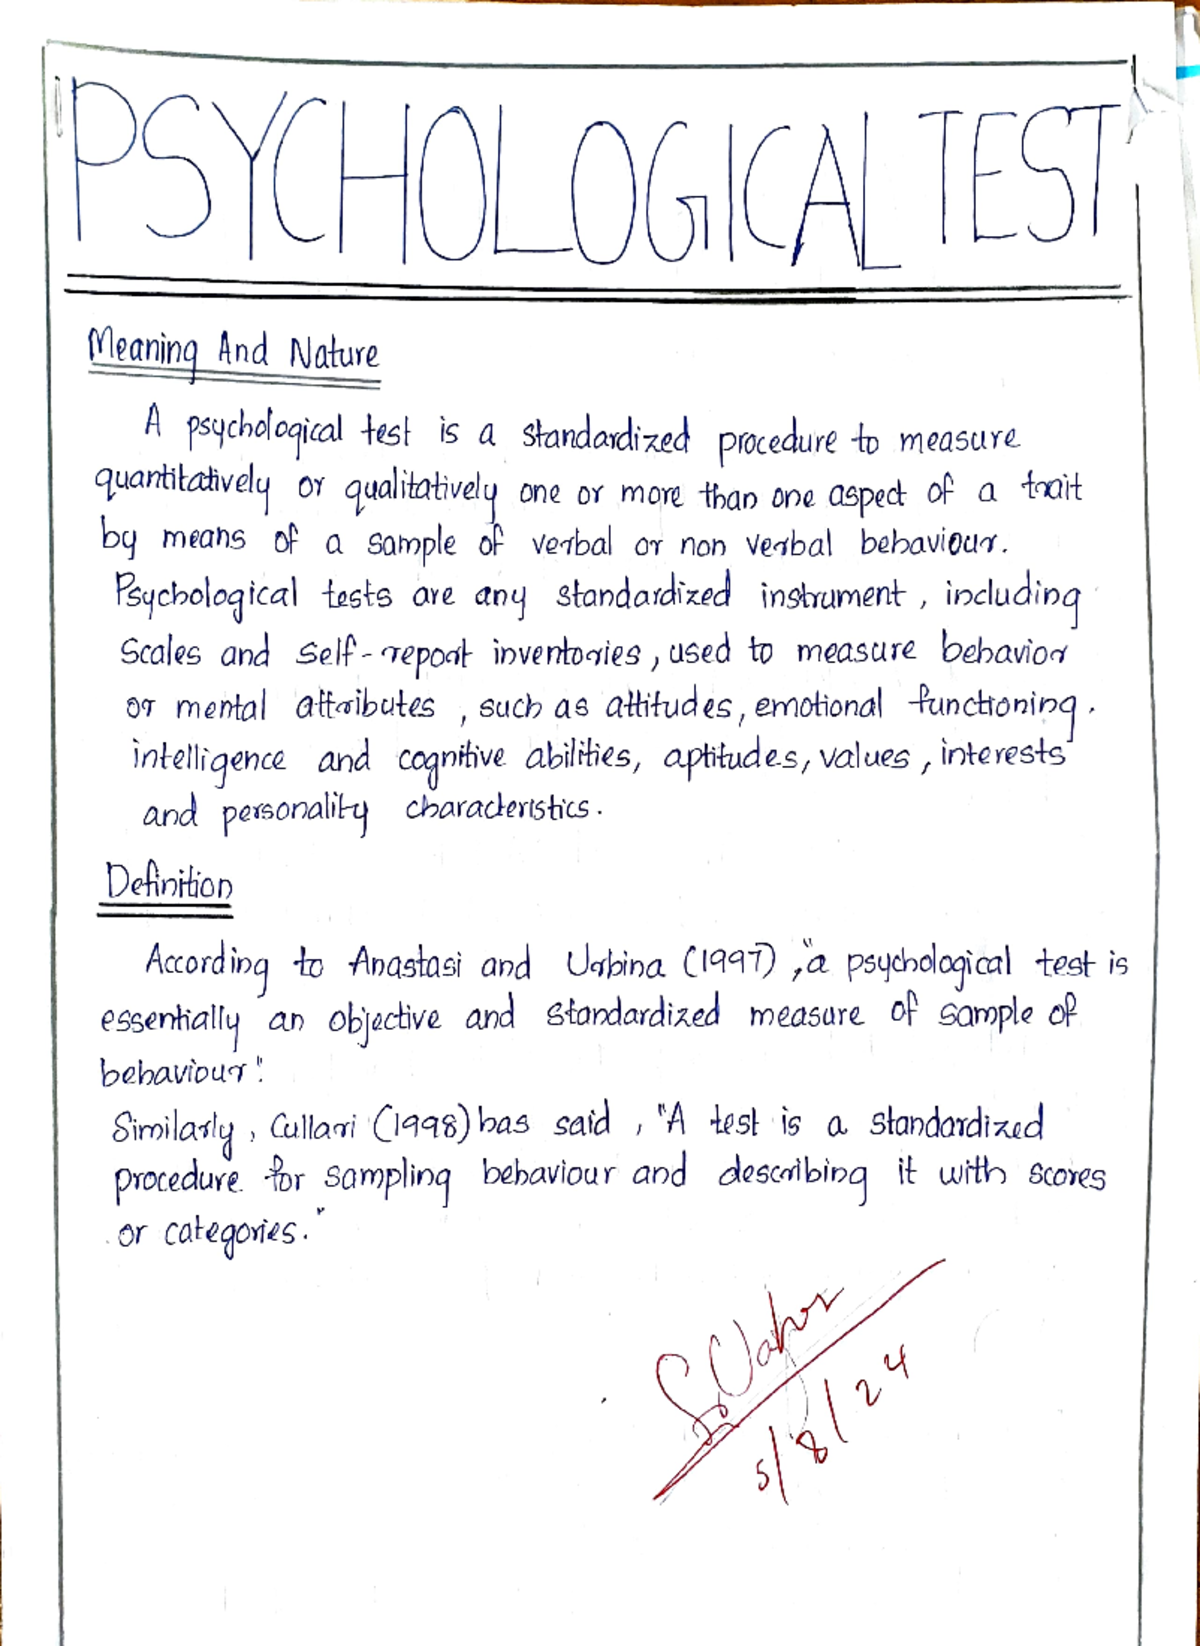 PSYCHOLOGICAL TEST
Meaning And Nature
A psychological test is a standardized procedure to measure
quantitatively or qualitatively one or more than one aspect of a trait
by means of a sample of verbal or non verbal behaviour.
Psychological tests are any standardized instrument, including
scales and self-report inventories, used to measure behavior
or mental attributes, such as attitudes, emotional functioning.
intelligence and cognitive abilities, aptitudes, values, interests
and personality characteristics.
Definition
According to Anastasi and Urbina (1997), "a psychological test is
essentially an objective and standardized measure of sample of
behaviour".
Similarly, Cullari (1998) has said, "A test is a standardized
procedure for sampling behaviour and describing it with scores
or categories."
5/8/24